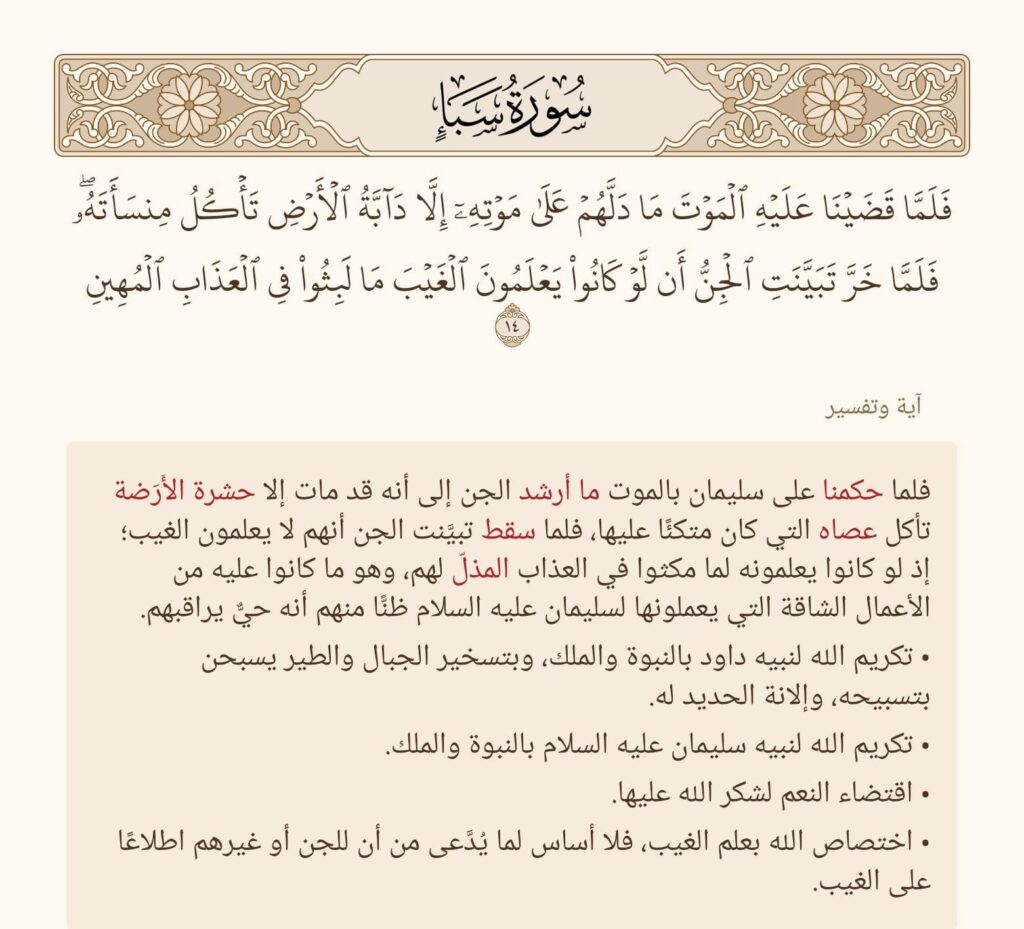 سُورَةُ سَبَإٍ
فَلَمَّا قَضَيْنَا عَلَيْهِ ٱلْمَوْتَ مَا دَلَّهُمْ عَلَىٰ مَوْتِهِۦٓ إِلَّا دَآبَّةُ ٱلْأَرْضِ تَأْكُلُ مِنسَأَتَهُۥۖ
فَلَمَّا خَرَّ تَبَيَّنَتِ ٱلْجِنُّ أَن لَّوْ كَانُوا۟ يَعْلَمُونَ ٱلْغَيْبَ مَا لَبِثُوا۟ فِى ٱلْعَذَابِ ٱلْمُهِينِ
١٤
آية وتفسير
فلما حكمنا على سليمان بالموت ما أرشد الجن إلى أنه قد مات إلا حشرة الأَرَضة
تأكل عصاه التي كان متكئًا عليها، فلما سقط تبيَّنت الجن أنهم لا يعلمون الغيب؛
إذ لو كانوا يعلمونه لما مكثوا في العذاب المذلّ لهم، وهو ما كانوا عليه من
الأعمال الشاقة التي يعملونها لسليمان عليه السلام ظنًّا منهم أنه حيٌّ يراقبهم.
• تكريم الله لنبيه داود بالنبوة والملك، وبتسخير الجبال والطير يسبحن
بتسبيحه، وإلانة الحديد له.
• تكريم الله لنبيه سليمان عليه السلام بالنبوة والملك.
• اقتضاء النعم لشكر الله عليها.
• اختصاص الله بعلم الغيب، فلا أساس لما يُدَّعى من أن للجن أو غيرهم اطلاعًا
على الغيب.